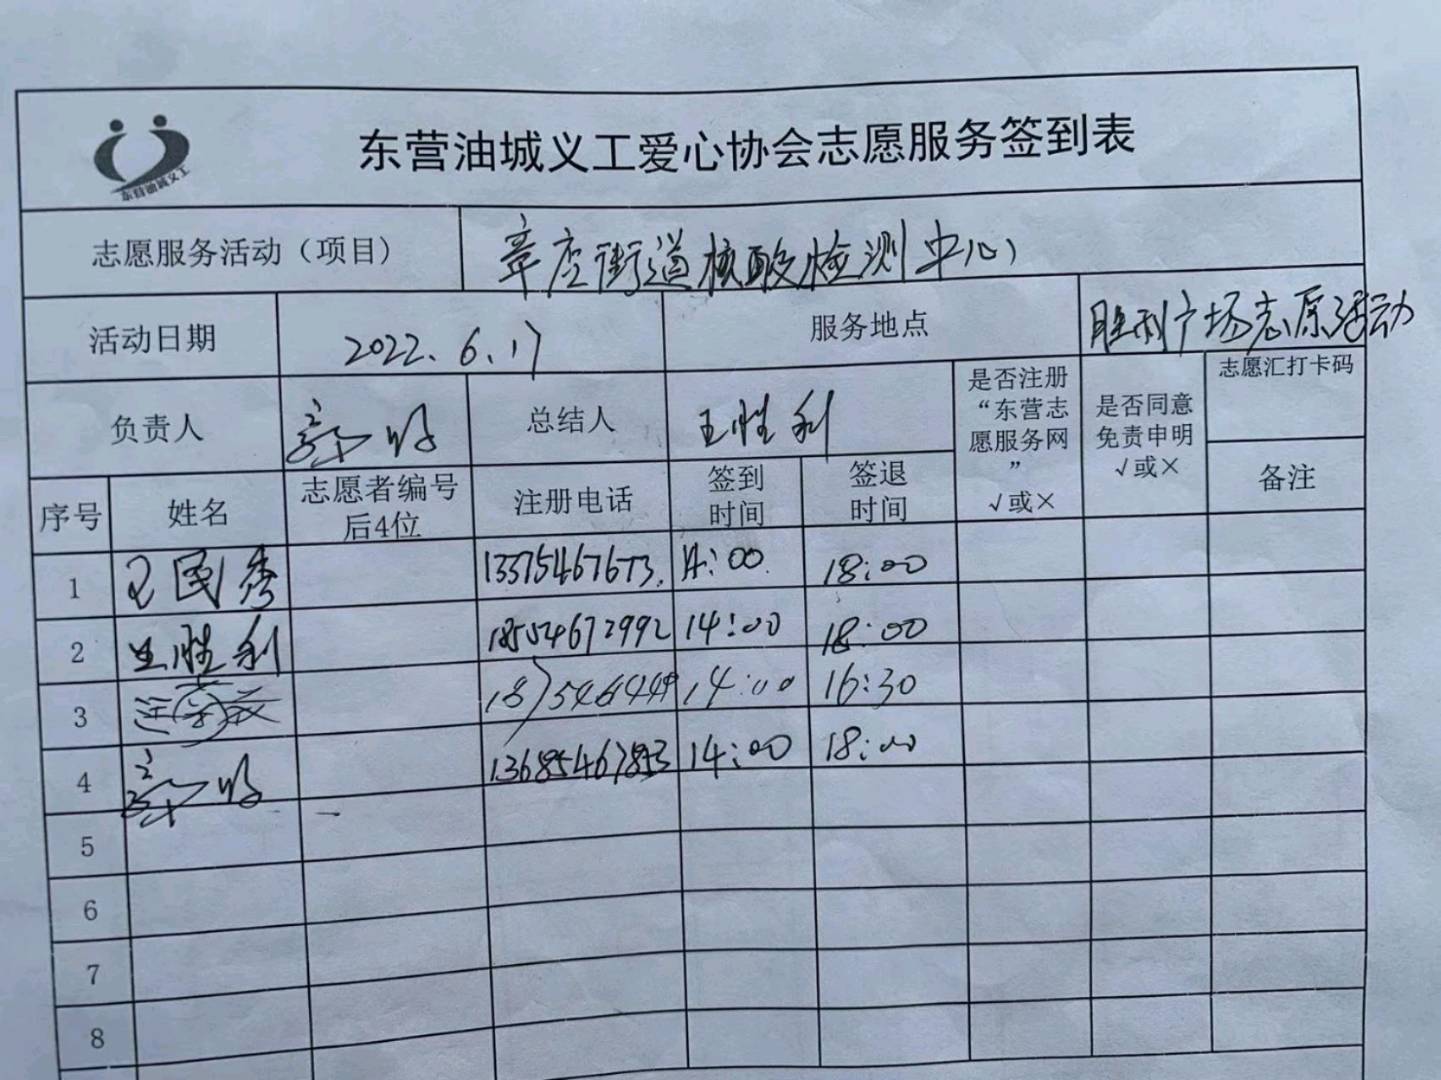 东营油城义工爱心协会志愿服务签到表
东营油城义工
志愿服务活动（项目）
街道核酸检测中心
活动日期 2022.6.17 服务地点 胜利广场志愿活动
负责人 总结人 王胜利
是否注册“东营志愿服务网” √或×
是否同意免责申明 √或×
志愿汇打卡码
备注
序号 姓名 志愿者编号后4位 注册电话 签到时间 签退时间
1 王民秀 13375467673 14:00 18:00
2 王胜利 18554672992 14:00 18:00
3 14:00 16:30
4 13685467853 14:00 18:00
5
6
7
8